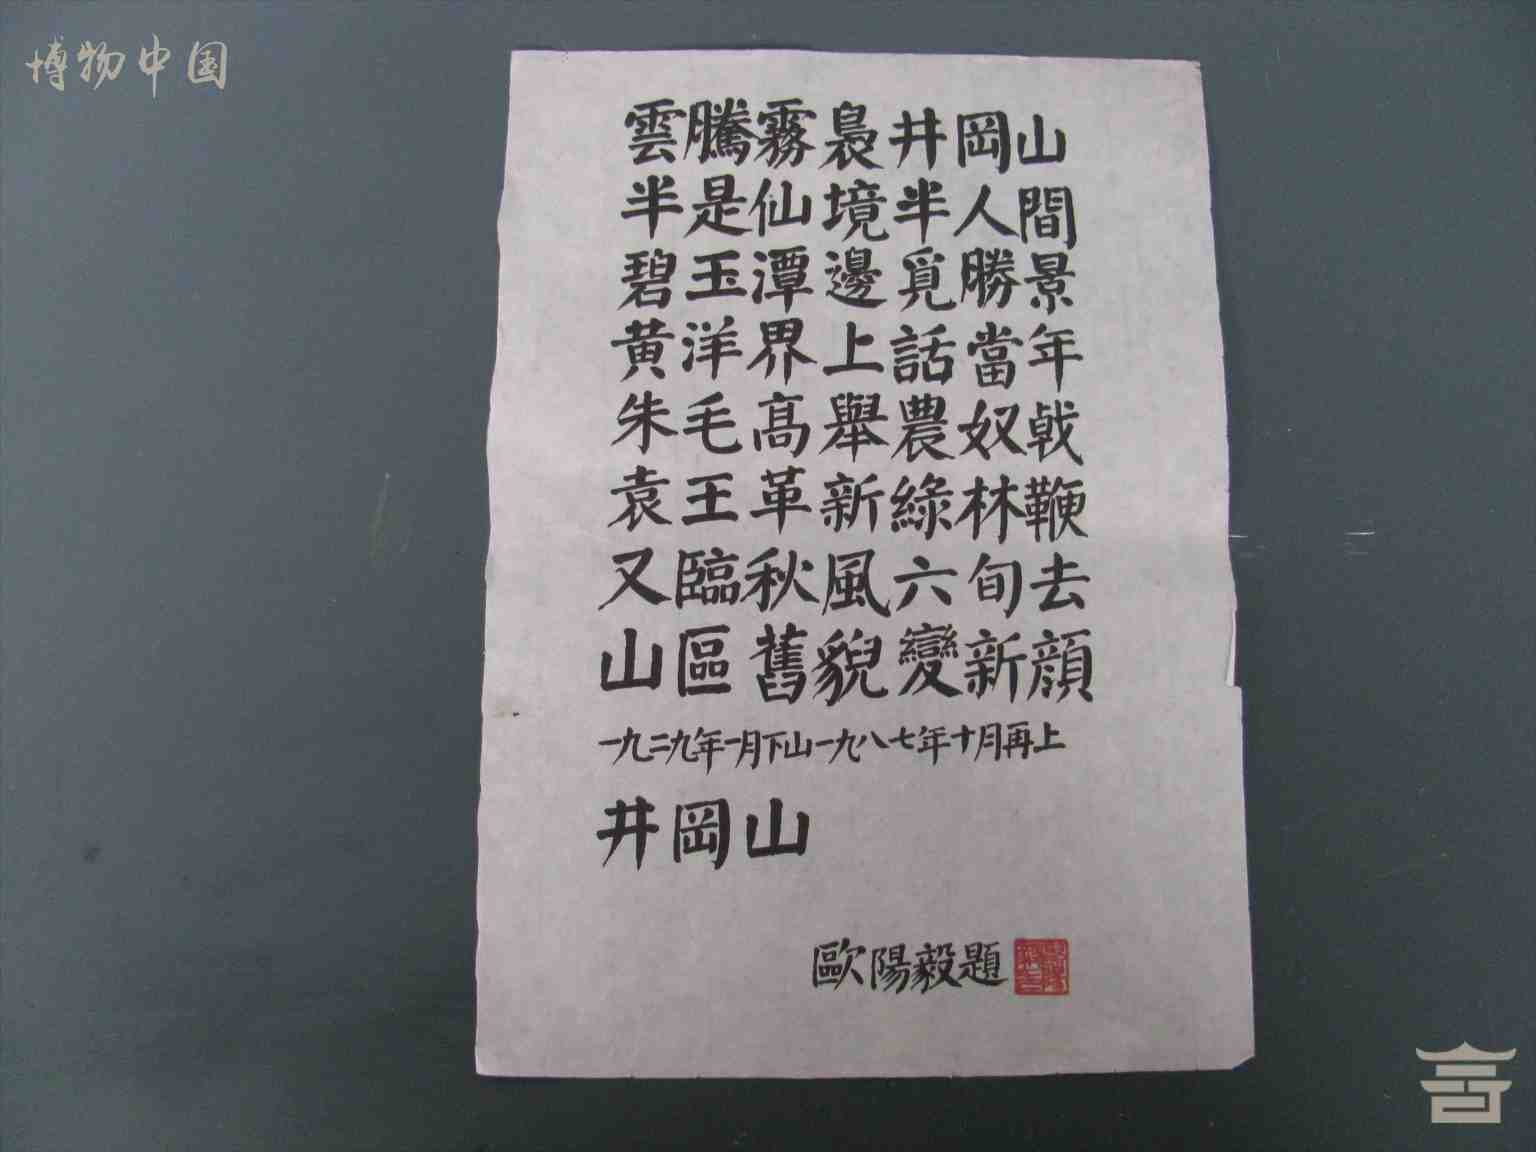 博物中国
雲騰霧裊井岡山
半是仙境半人間
碧玉潭邊覓勝景
黄洋界上話當年
朱毛高舉農奴戟
袁王革新綠林鞭
又臨秋風六旬去
山區舊貌變新顔
一九二九年一月下山一九八七年十月再上
井岡山
歐陽毅題